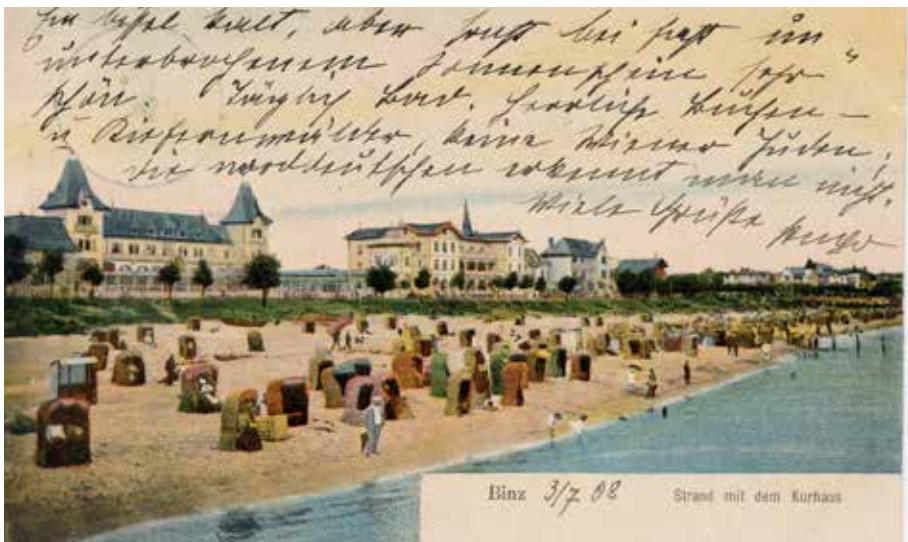 Ein bissel kalt, aber sonst bei fast un
unterbrochenem Sonnenschein sehr
schön. Täglich Bad. Herrliche Buchen-
u Kiefernwälder, keine Wiener Juden,
die norddeutschen erkennt man nicht.
Viele Grüße
Hugo
Binz 3/7 08 Strand mit dem Kurhaus